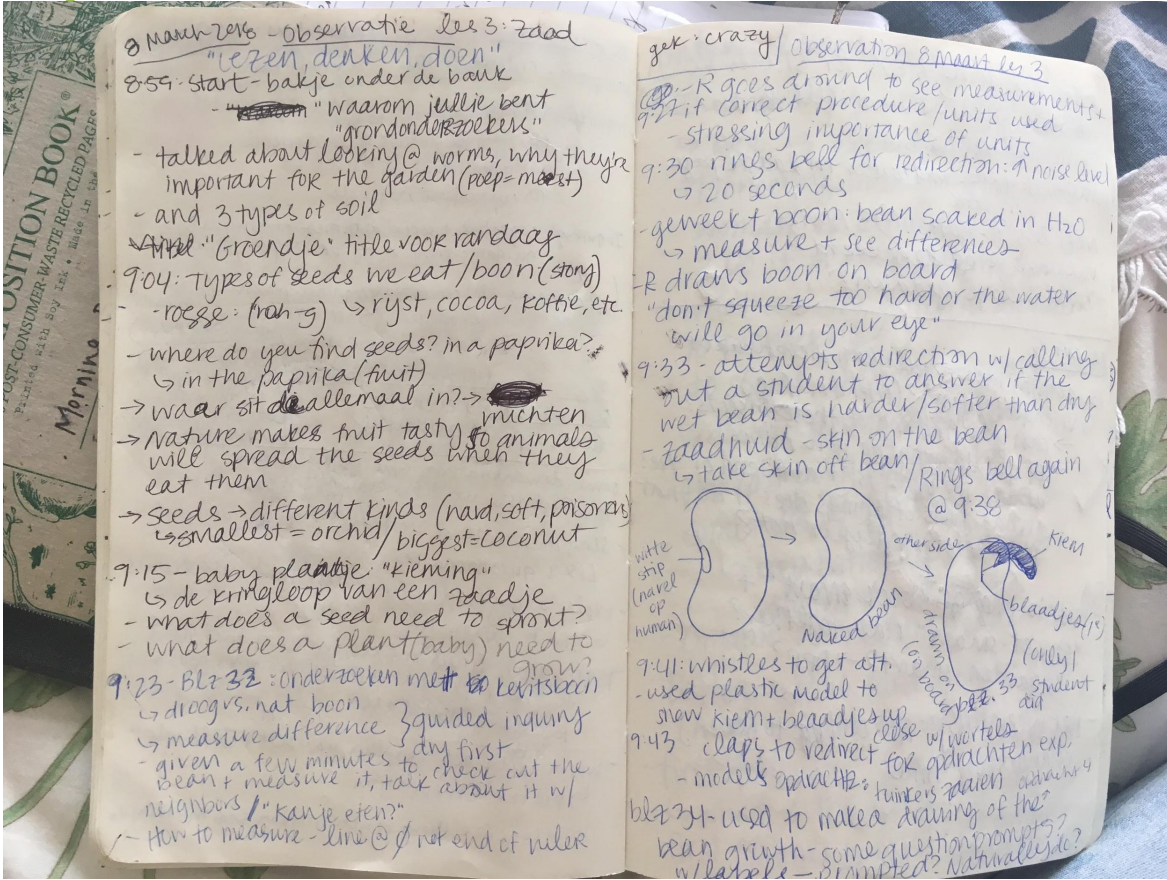 POSITION BOOK ®
POST-CONSUMER-WASTE RECYCLED PAGES
Printed with Soy ink • Made in the
Morning
8 March 2018 - Observatie les 3: zaad
"Lezen, denken, doen"
8:59: start - bakje onder de bank
- "waarom jullie bent
"grondonderzoekers"
- talked about looking @ worms, why they're
important for the garden (poep = mest)
- and 3 types of soil
"Groendje" title voor vandaag
9:04: Types of seeds we eat/boon (story)
- rogge: (roh-g) ↳ rijst, cocoa, koffie, etc.
- where do you find seeds? in a paprika?
↳ in the paprika (fruit)
→ waar sit de allemaal in? →
vruchten
→ Nature makes fruit tasty so animals
will spread the seeds when they
eat them
→ seeds → different kinds (hard, soft, poisonous)
↳ smallest = orchid / biggest = coconut
9:15 - baby plantje "kieming"
↳ de kringloop van een zaadje
- what does a seed need to sprout?
- what does a plant (baby) need to
grow?
9:23 - Blz 32 : onderzoeken met kevitsboon
↳ droog vs. nat boon
↳ measure difference } guided inquiry
dry first
- given a few minutes to check out the
bean + measure it, talk about it w/
neighbors / "Kan je eten?"
- How to measure - line @ 0 not end of ruler
gek: crazy / Observation 8 Maart les 3
- R goes around to see measurements +
9:27 if correct procedure/units used
- stressing importance of units
9:30 rings bell for redirection: ↑ noise level
↳ 20 seconds
- geweekt boon: bean soaked in H2O
↳ measure + see differences
- R draws boon on board
"don't squeeze too hard or the water
will go in your eye"
9:33 - attempts redirection w/ calling
out a student to answer if the
wet bean is harder/softer than dry
- zaadhuid - skin on the bean
↳ take skin off bean / Rings bell again
@ 9:38
witte
stip
(navel op
human)
→
Naked bean
other side
→
kiem
blaadjes
drawn on
(on board)
blz. 33
(only 1
student
did
9:41: whistles to get att.
- used plastic model to
show kiem + blaadjes up
close w/ wortels
9:43 claps to redirect for opdrachten exp.
- models opdracht 2: tuinkers zaaien opdracht 4
blz 34 - used to make a drawing of the
bean growth - some question prompts?
w/ labels - prompted? Naturally do?